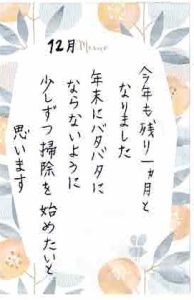 12月 Memo
今年も残り一ヵ月と
なりました
年末にバタバタに
ならないように
少しずつ掃除を始めたいと
思います